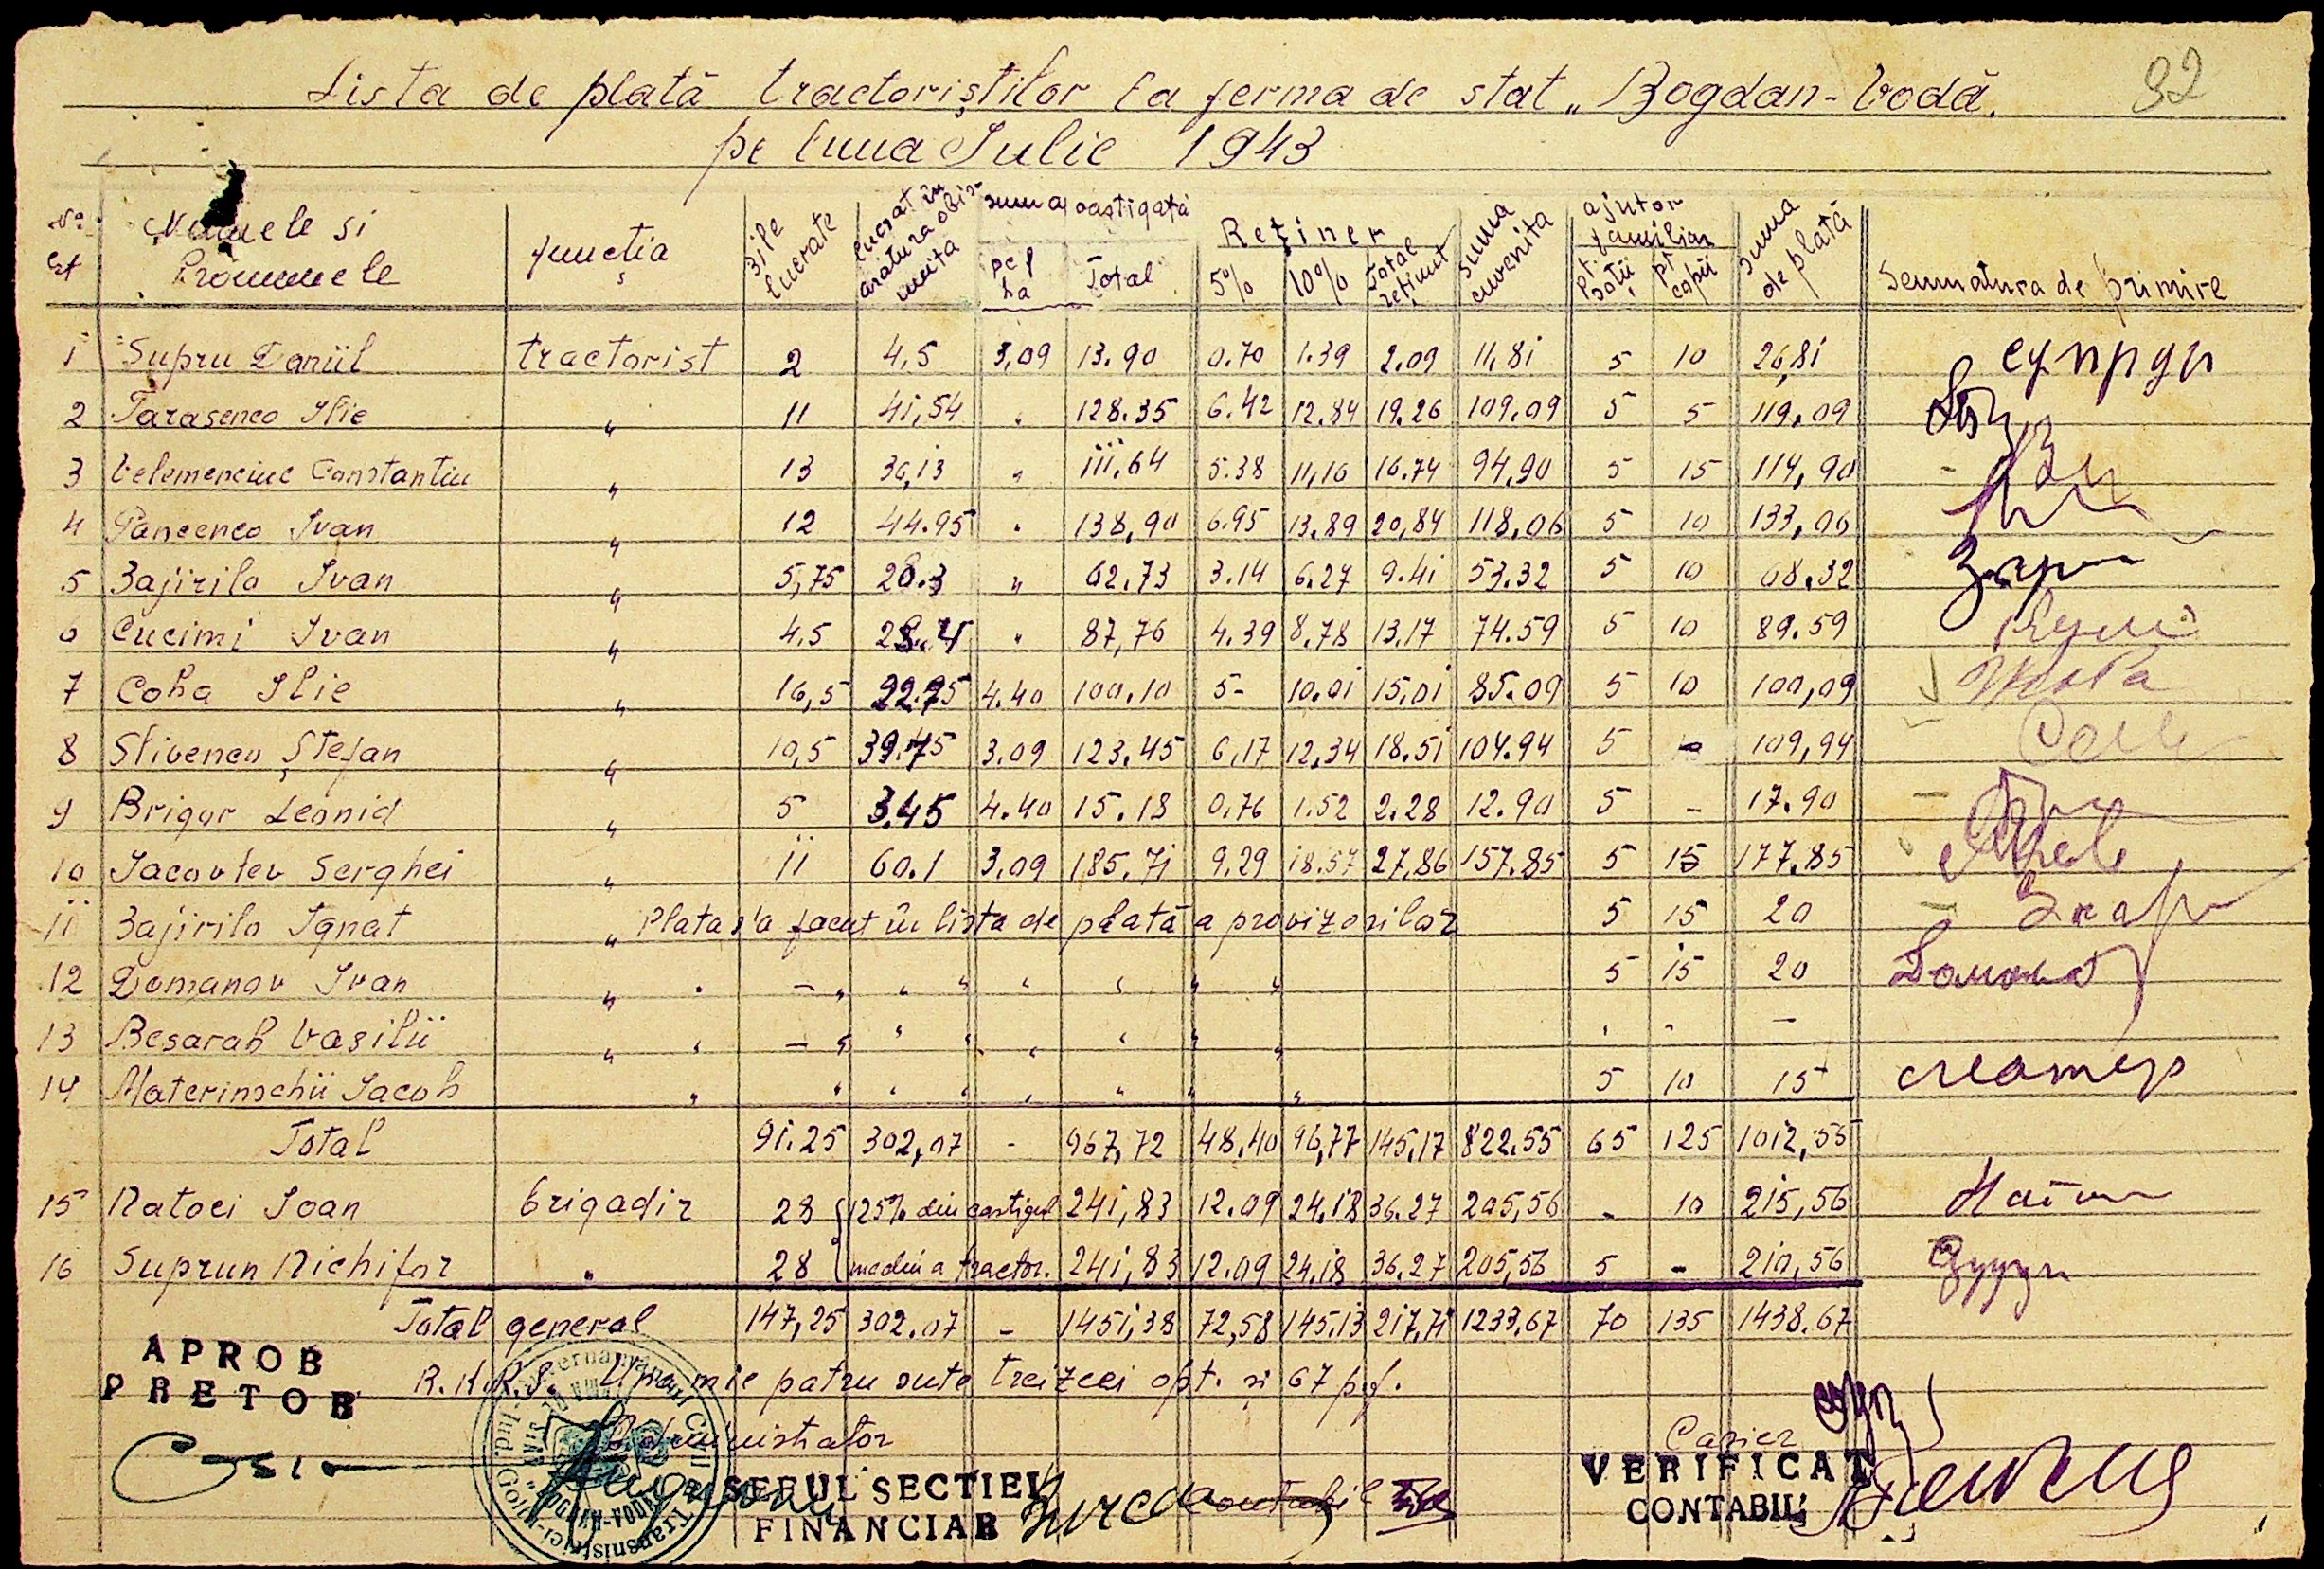 92
Lista de plată tractoriștilor la ferma de stat „Bogdan-Vodă"
pe luna Iulie 1943
No. crt Numele si Pronumele functia zile lucrate lucrat în aratura obisnuita suma castigata pe 1 ha Total Rețineri 5% 10% Total reținut suma cuvenita ajutor familiar pt. soții pt copii suma de plată Semnatura de primire
1 Supru Daniil tractorist 2 4,5 3,09 13.90 0.70 1.39 2.09 11,81 5 10 26,81
2 Tarasenco Ilie " 11 41,54 " 128.35 6.42 12.84 19.26 109.09 5 5 119,09
3 Velemenciuc Constantin " 13 36,13 " 111.64 5.38 11,16 16.74 94,90 5 15 114,90
4 Pancenco Ivan " 12 44.95 " 138,90 6.95 13.89 20,84 118,06 5 10 133,06
5 Zajirilo Ivan " 5,75 20.3 " 62.73 3.14 6.27 9.41 53.32 5 10 68.32
6 Cucimi Ivan " 4.5 28.4 " 87,76 4.39 8.78 13,17 74.59 5 10 89.59
7 Coha Ilie " 16,5 22.75 4.40 100.10 5- 10.01 15,01 85.09 5 10 100,09
8 Slivenco Ștefan " 10,5 39.75 3.09 123.45 6,17 12,34 18.51 104.94 5 109,94
9 Brigar Leonid " 5 3.45 4.40 15.18 0,76 1.52 2.28 12.90 5 - 17.90
10 Iacovlev Serghei " 11 60.1 3,09 185.71 9.29 18.57 27,86 157.85 5 15 177.85
11 Zajirilo Ignat " Plata s'a facut în lista de plată a provizorilor 5 15 20
12 Domanov Ivan " " - " " " " " " " 5 15 20
13 Besarab Vasilii " " - " " " " " " " " " -
14 Materinschii Iacob " " " " " " " " 5 10 15
Total 91.25 302,07 - 967,72 48,40 96,77 145,17 822.55 65 125 1012,55
15 Natoci Ioan brigadir 28 125% din castigul 241,83 12.09 24,18 36.27 205,56 - 10 215,56
16 Suprun Nichifor " 28 mediu a tractor. 241,83 12.09 24,18 36.27 205,56 5 - 210,56
Total general 147,25 302.07 - 1451,38 72,58 145.13 217,71 1233,67 70 135 1438.67
APROB
PRETOR
R.K.K.S. Una mie patru sute treizeci opt. și 67 pf.
Administrator
Casier
SEFUL SECTIEI
FINANCIAR
contabil
VERIFICAT
CONTABIL